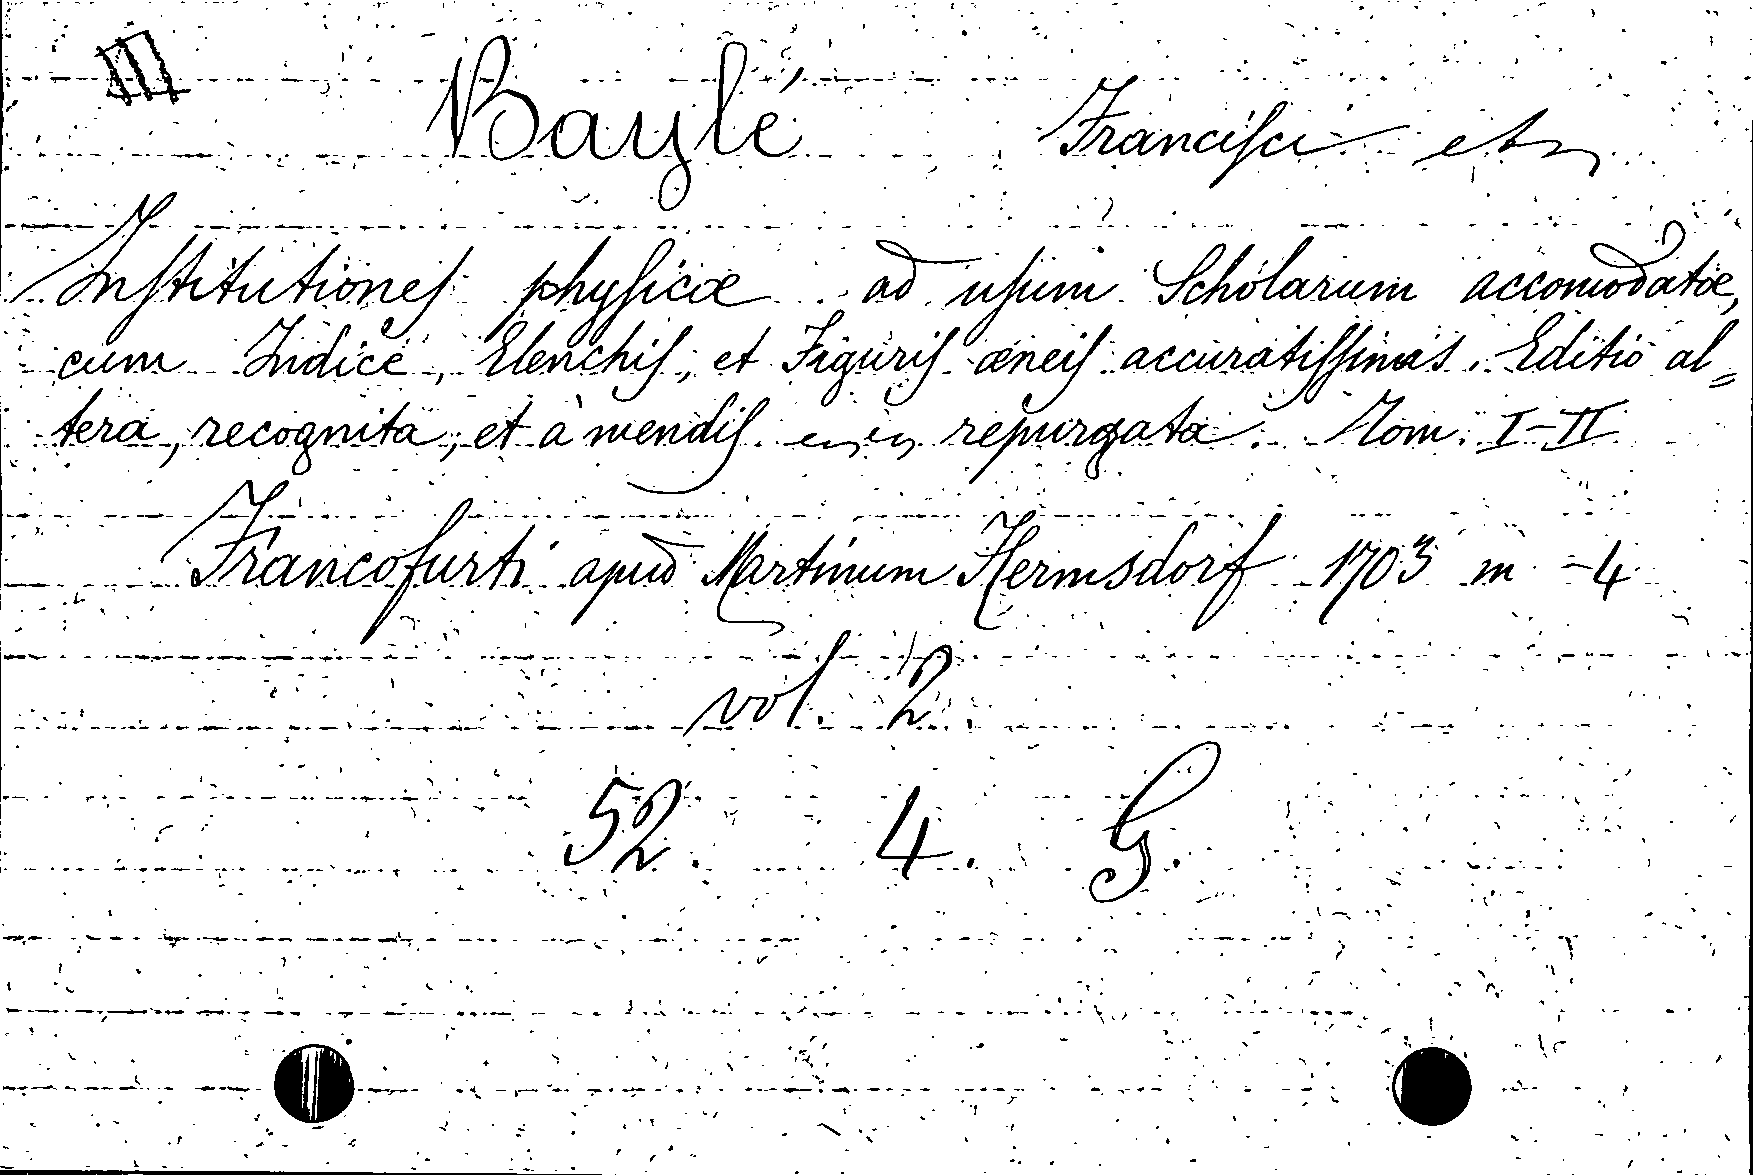 III
Bayle Franciſci etc
Inſtitutioneſ phyſicæ ad uſum Scholarum accomodatæ,
cum Indice, Elenchiſ, et Figuriſ æneiſ accuratiſſimis. Editio al⸗
tera, recognita, et à mendiſ repurgata. Tom. I-II
Francofurti apud Martinum Hermsdorf 1703 in -4
vol. 2.
52. 4. G.